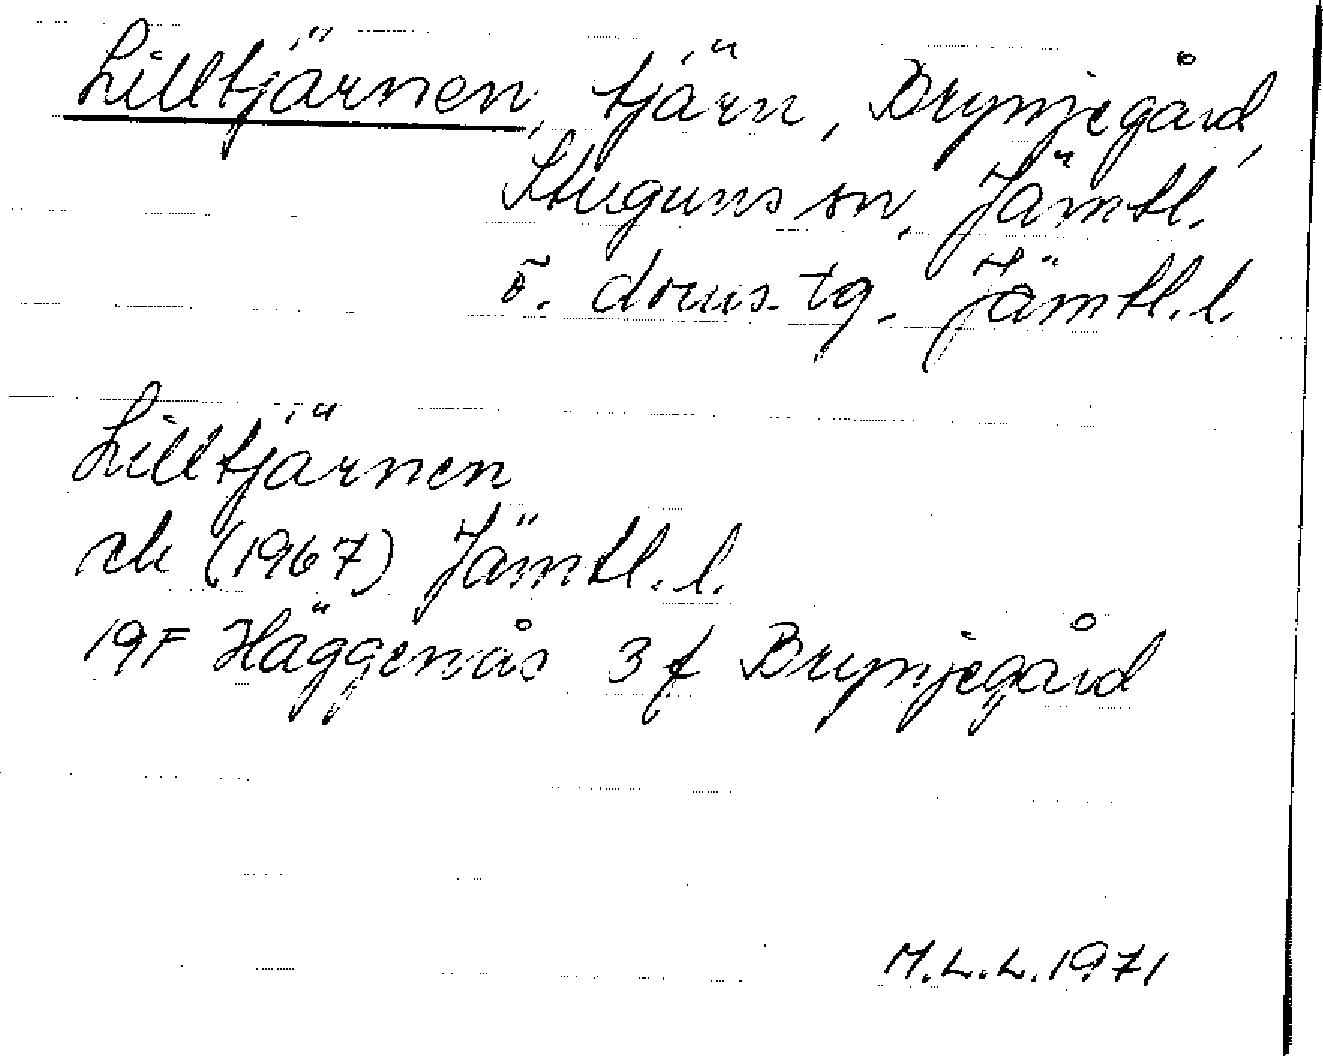 Lilltjärnen, tjärn, Brynjegård,
Stuguns sn, Jämtl.
ö. doms. tg. Jämtl. l.
Lilltjärnen
ek (1967) Jämtl. l.
19F Häggenås 3f Brynjegård
M.L.L. 1971